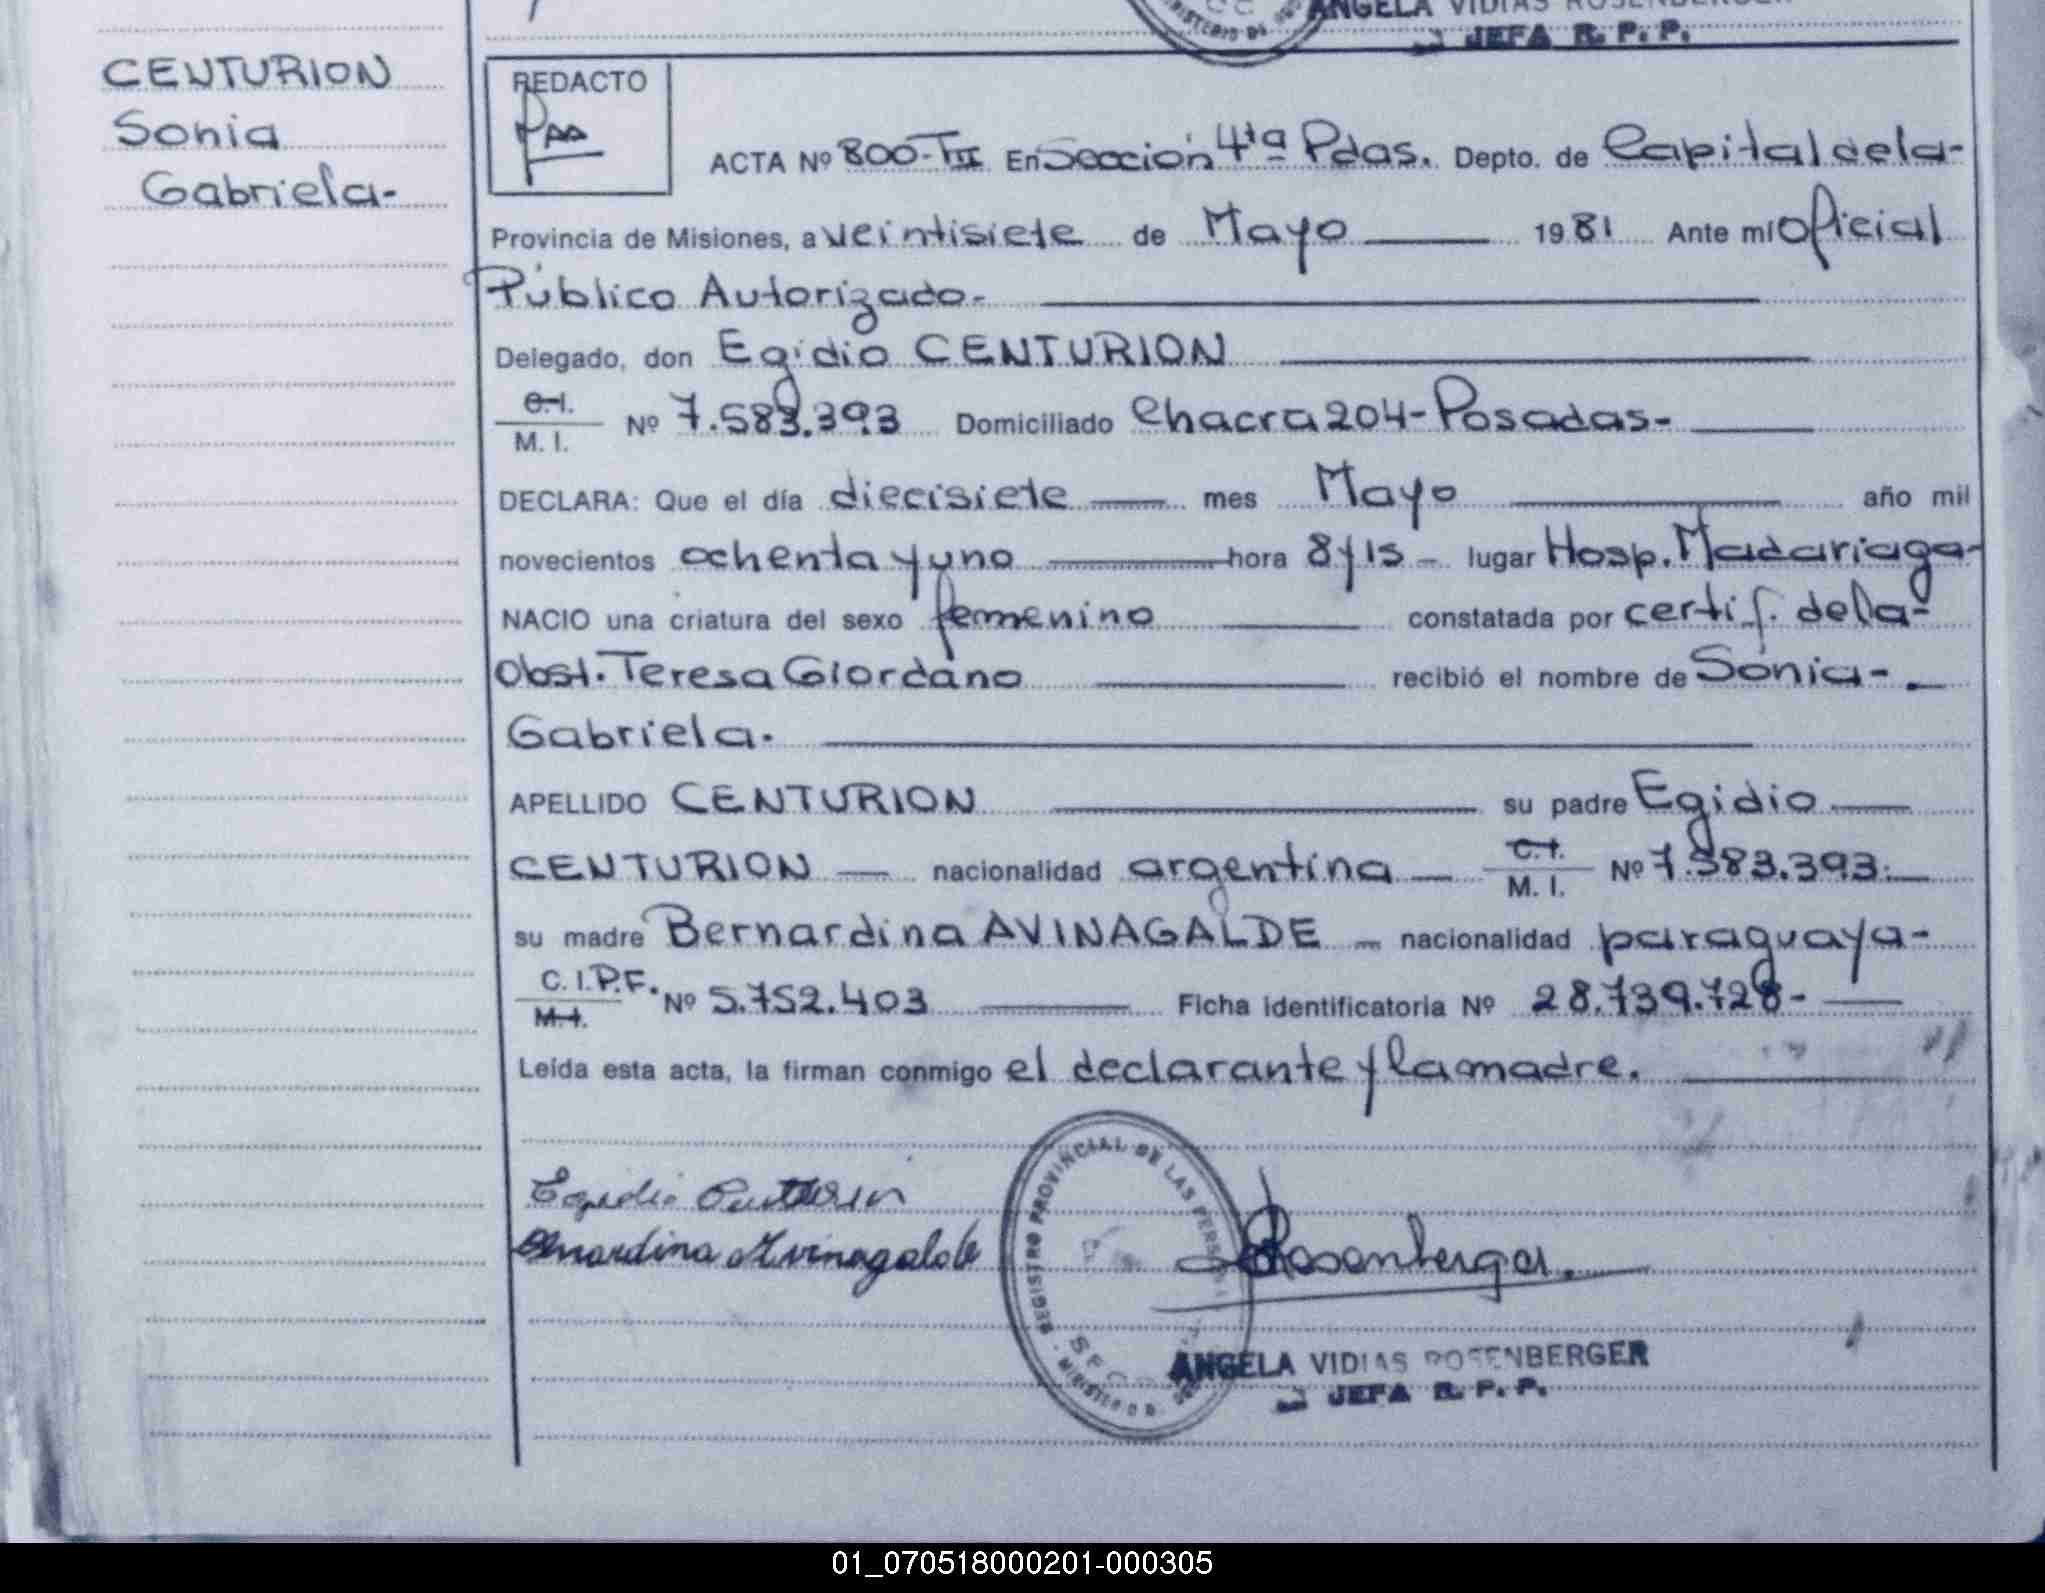 ANGELA VIDIAS ROSENBERGER
JEFA R. P. P.
CENTURION
Sonia
Gabriela-
REDACTO
ACTA Nº 800-TIII En Sección 4ta Pdas. Depto. de Capital de la-
Provincia de Misiones, a veintisiete de Mayo 1981 Ante mí Oficial
Público Autorizado-
Delegado, don Egidio CENTURION
C.I. M. I. Nº 7.583.393 Domiciliado Chacra 204-Posadas-
DECLARA: Que el día diecisiete mes Mayo año mil
novecientos ochenta y uno hora 8 y 15 - lugar Hosp. Madariaga-
NACIO una criatura del sexo femenino constatada por certif. de la-
Obst. Teresa Giordano recibió el nombre de Sonia-
Gabriela.
APELLIDO CENTURION su padre Egidio
CENTURION nacionalidad argentina C.I. M. I. Nº 7.583.393.
su madre Bernardina AVINAGALDE nacionalidad paraguaya-
C. I. P.F. M.I. Nº 5.752.403 Ficha identificatoria Nº 28.739.728-
Leída esta acta, la firman conmigo el declarante y la madre.
Egidio Centurion
Bernardina Avinagalde
REGISTRO PROVINCIAL DE LAS PERSONAS
Rosenberger.
ANGELA VIDIAS ROSENBERGER
JEFA R. P. P.
01_070518000201-000305